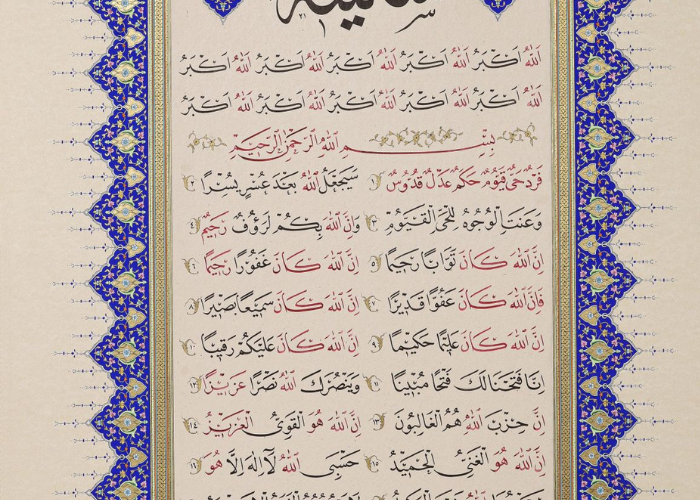 سكينه
الله اكبر الله اكبر الله اكبر الله اكبر الله اكبر
الله اكبر الله اكبر الله اكبر الله اكبر الله اكبر
بِسْمِ اللهِ الرَّحْمٰنِ الرَّحِيمِ
فَرْدٌ حَىٌّ قَيُّومٌ حَكَمٌ عَدْلٌ قُدُّوسٌ ١ سَيَجْعَلُ اللهُ بَعْدَ عُسْرٍ يُسْرًا ٢
وَعَنَتِ الْوُجُوهُ لِلْحَىِّ الْقَيُّومِ ٣ وَاِنَّ اللهَ بِكُمْ لَرَؤُفٌ رَحِيمٌ ٤
اِنَّ اللهَ كَانَ تَوَّابًا رَحِيمًا ٥ اِنَّ اللهَ كَانَ غَفُورًا رَحِيمًا ٦
فَاِنَّ اللهَ كَانَ عَفُوًّا قَدِيرًا اِنَّ اللهَ كَانَ سَمِيعًا بَصِيرًا ٨
اِنَّ اللهَ كَانَ عَلِيمًا حَكِيمًا ٩ اِنَّ اللهَ كَانَ عَلَيْكُمْ رَقِيبًا ١٠
اِنَّا فَتَحْنَا لَكَ فَتْحًا مُبِينًا ١١ وَيَنْصُرَكَ اللهُ نَصْرًا عَزِيزًا ١٢
اِنَّ حِزْبَ اللهِ هُمُ الْغَالِبُونَ ١٣ اِنَّ اللهَ هُوَ الْقَوِىُّ الْعَزِيزُ ١٤
اِنَّ اللهَ هُوَ الْغَنِىُّ الْحَمِيدُ ١٥ حَسْبِىَ اللهُ لَا اِلٰهَ اِلَّا هُوَ ١٦